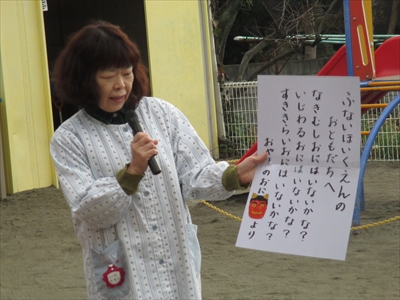 ふないほいくえんの
おともだちへ
なきむしおにはいないかな？
いじわるおにはいないかな？
すききらいおにはいないかな？
おやまのおにより